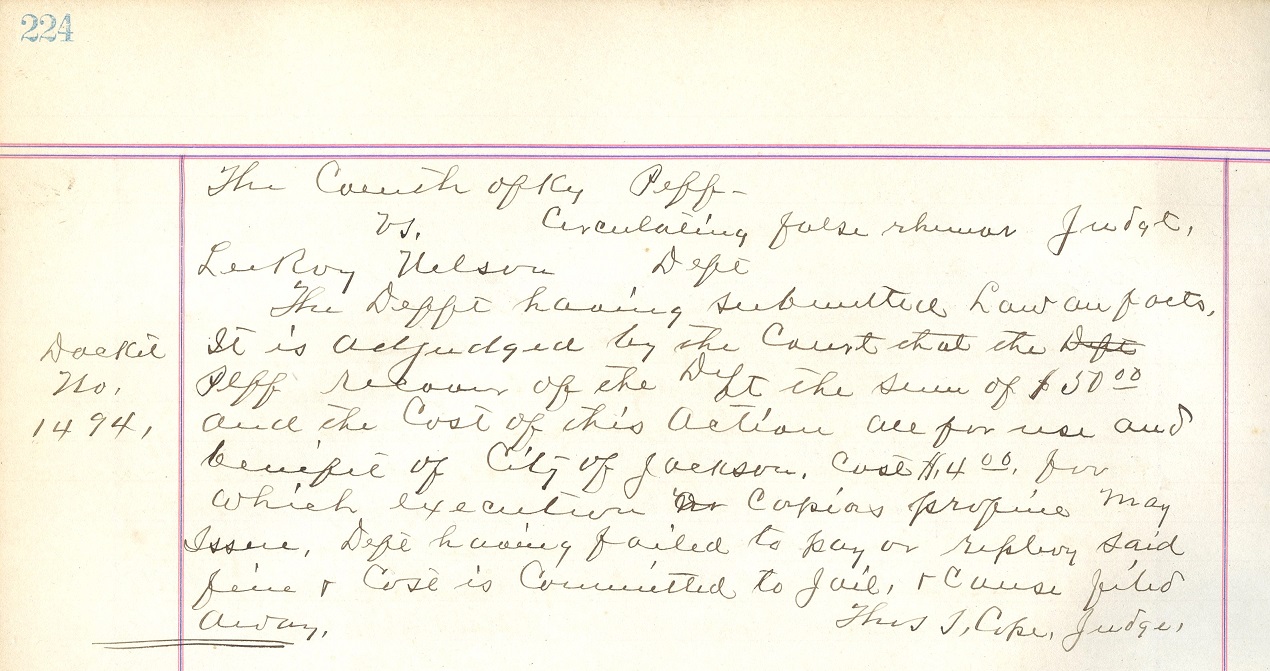 224
The Comth of Ky Peff-
vs. Circulating false rhumor Judgt,
LeeRoy Nelson Deft
The Defft having submitted Law an facts,
Docket No. 1494,
It is adjudged by the Court that the Deft
Plff recover of the Deft the sum of $50 00
and the Cost of this Action all for use and
benifit of City of Jackson. Cost $4 00, for
which execution or Capias profine may
Issue, Deft having failed to pay or replevy said
fine & Cost is Committed to Jail, & Cause filed
away, Thos T, Cope, Judge,